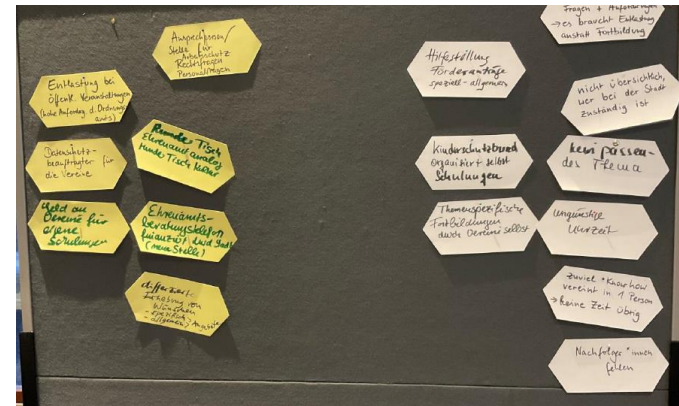 Ansprechperson/
Stelle für
Arbeitsschutz
Rechtsfragen
Personalfragen
Entlastung bei
öffentl. Veranstaltungen
(hohe Anforderg. d. Ordnungs-
amts)
Datenschutz-
beauftragter für
die Vereine
Runder Tisch
Ehrenamt analog
runder Tisch Kultur
Geld an
Vereine für
eigene
Schulungen
Ehrenamts-
beratungstelefon
finanziert durch Stadt
(neue Stelle)
differenzierte
Erhebung von
Wünschen
- spezifisch
- allgemein
Hilfestellung
Förderanträge
speziell - allgemein
Kinderschutzbund
organisiert selbst
Schulungen
Themenspezifische
Fortbildungen
durch Vereine selbst
Fragen + Anforderungen
→ es braucht Entlastung
anstatt Fortbildung
nicht übersichtlich,
wer bei der Stadt
zuständig ist
kein passen-
des Thema
Ungünstige
Uhrzeit
zuviel Know how
vereint in 1 Person
→ keine Zeit übrig
Nachfolger*innen
fehlen